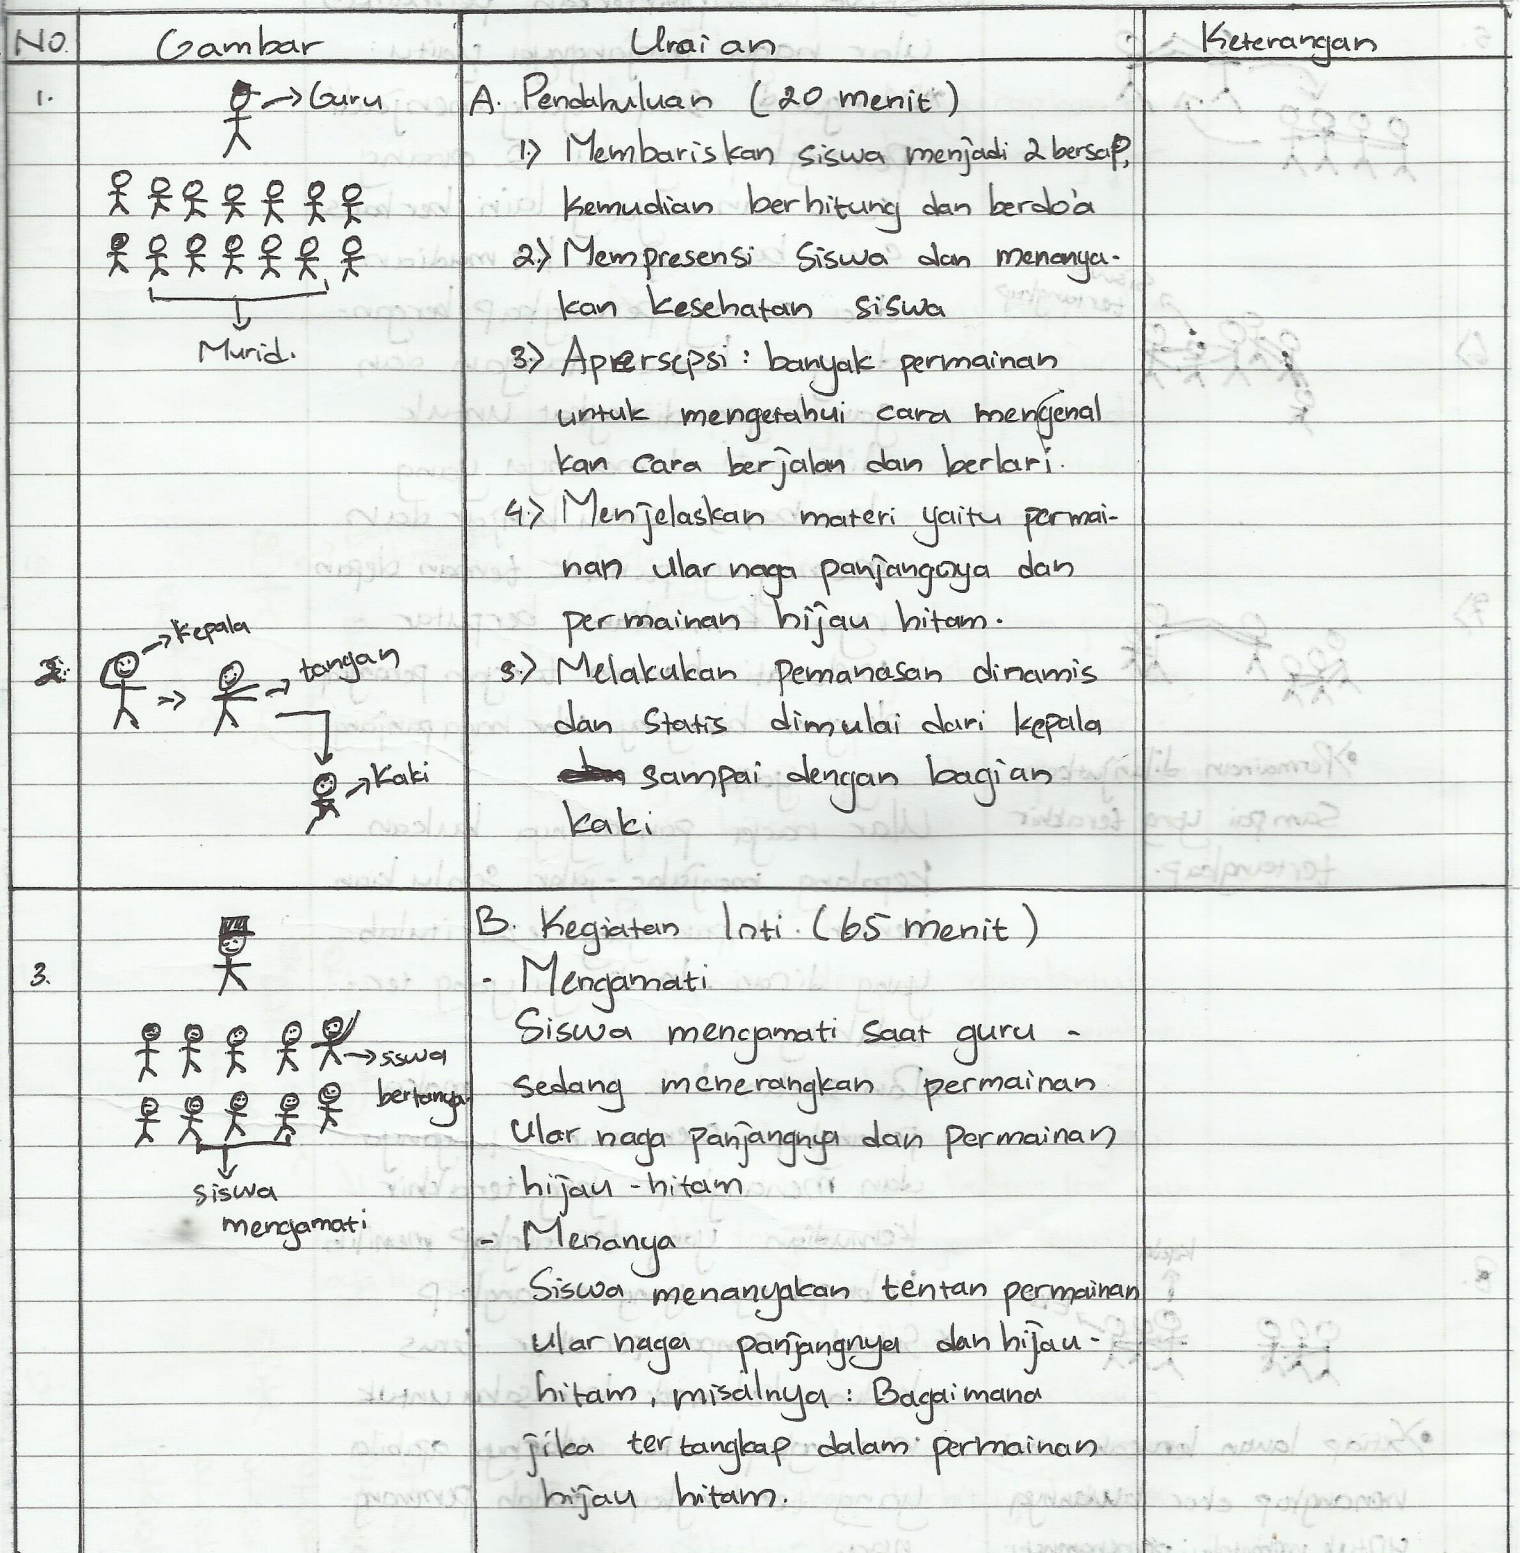 NO. Gambar Uraian Keterangan
1. → Guru
Murid.
A. Pendahuluan (20 menit)
1.) Membariskan siswa menjadi 2 bersap,
kemudian berhitung dan berdo'a
2.) Mempresensi siswa dan menanya-
kan kesehatan siswa
3.) Apersepsi : banyak permainan
untuk mengetahui cara mengenal
kan cara berjalan dan berlari.
4.) Menjelaskan materi yaitu permai-
nan ular naga panjangnya dan
permainan hijau hitam.
2. → kepala
→ tangan
→ kaki
5.) Melakukan pemanasan dinamis
dan statis dimulai dari kepala
sampai dengan bagian
kaki
3.
→ siswa
bertanya
siswa
mengamati
B. Kegiatan Inti. (65 menit)
- Mengamati
Siswa mengamati saat guru -
sedang menerangkan permainan
Ular naga panjangnya dan permainan
hijau - hitam
- Menanya
Siswa menanyakan tentan permainan
ular naga panjangnya dan hijau -
hitam, misalnya : Bagaimana
jika tertangkap dalam permainan
hijau hitam.